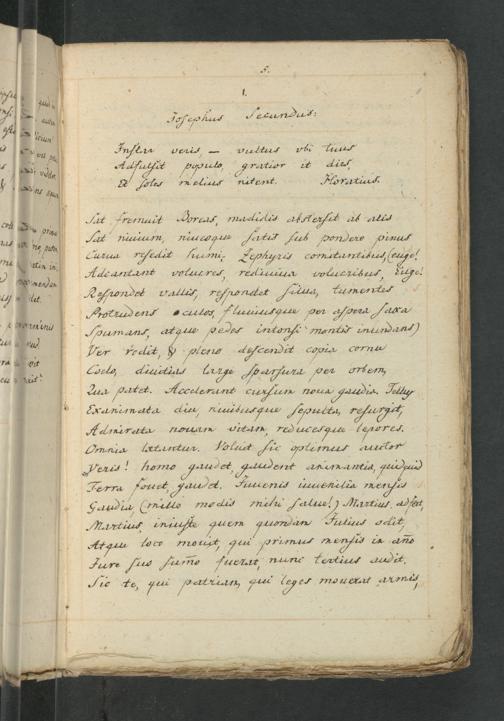 5.
1.
Josephus Secundus:
Instar veris — vultus vbi tuus
Adfulsit populo, gratior it dies
Et soles melius nitent. Horatius.
Sat fremuit Boreas, madidis abstersit ab alis
Sat niuium, niueoque satis sub pondere pinus
Curua resedit humi; Zephyris comitantibus, (euge!
Adcantant volucres, rediuiua volucribus, Euge!
Respondet vallis, respondet silua, tumentes
Protrudens oculos, fluuiusque per aspera saxa
Spumans, atque pedes intonsi montis inundans)
Ver redit, & pleno descendit copia cornu
Coelo, diuitias large sparsura per orbem,
Qua patet. Accelerant cursum noua gaudia. Tellus
Exanimata diu, niuibusque sepulta, resurgit,
Admirata nouam vitam, reducesque lepores.
Omnia laetantur. Voluit sic optimus auctor
Veris! homo gaudet, gaudent animantia, quidquid
Terra fouet, gaudet. Juuenis iuuenilia mensis
Gaudia, (mille modis mihi salue!) Martius adfert,
Martius, iniuste quem quondam Julius odit,
Atque loco mouit, qui primus mensis in año
Jure suo sum̃o fuerat, nunc tertius audit.
Sic te, qui patriam, qui leges mouerat armis,